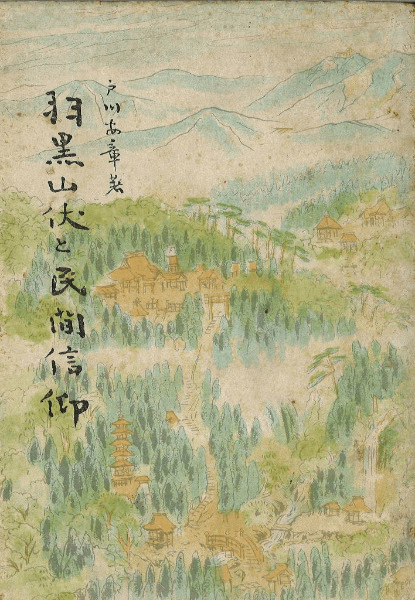 戸川安章著
羽黒山伏と民間信仰